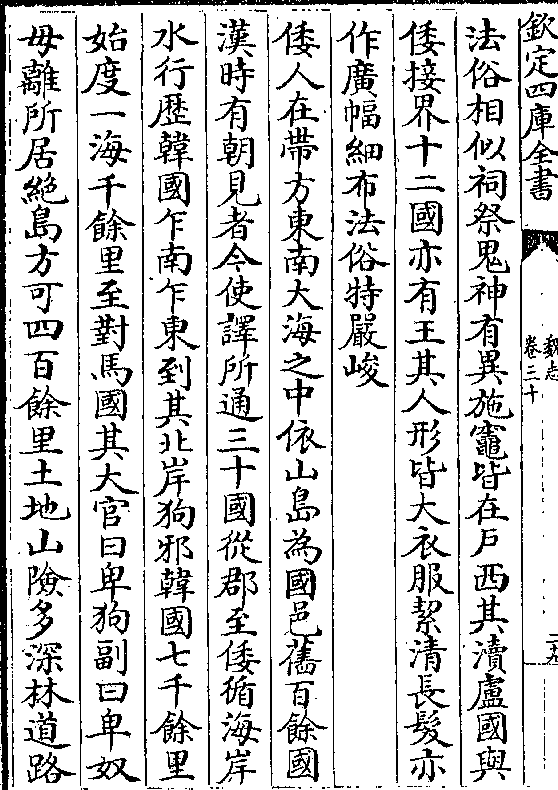 欽定四庫全書
魏志
卷三十
二十九
法俗相似祠祭鬼神有異施竈皆在戶西其瀆盧國與
倭接界十二國亦有王其人形皆大衣服絜清長髮亦
作廣幅細布法俗特嚴峻
倭人在帶方東南大海之中依山島為國邑舊百餘國
漢時有朝見者今使譯所通三十國從郡至倭循海岸
水行歴韓國乍南乍東到其北岸狗邪韓國七千餘里
始度一海千餘里至對馬國其大官曰卑狗副曰卑奴
毋離所居絶島方可四百餘里土地山險多深林道路